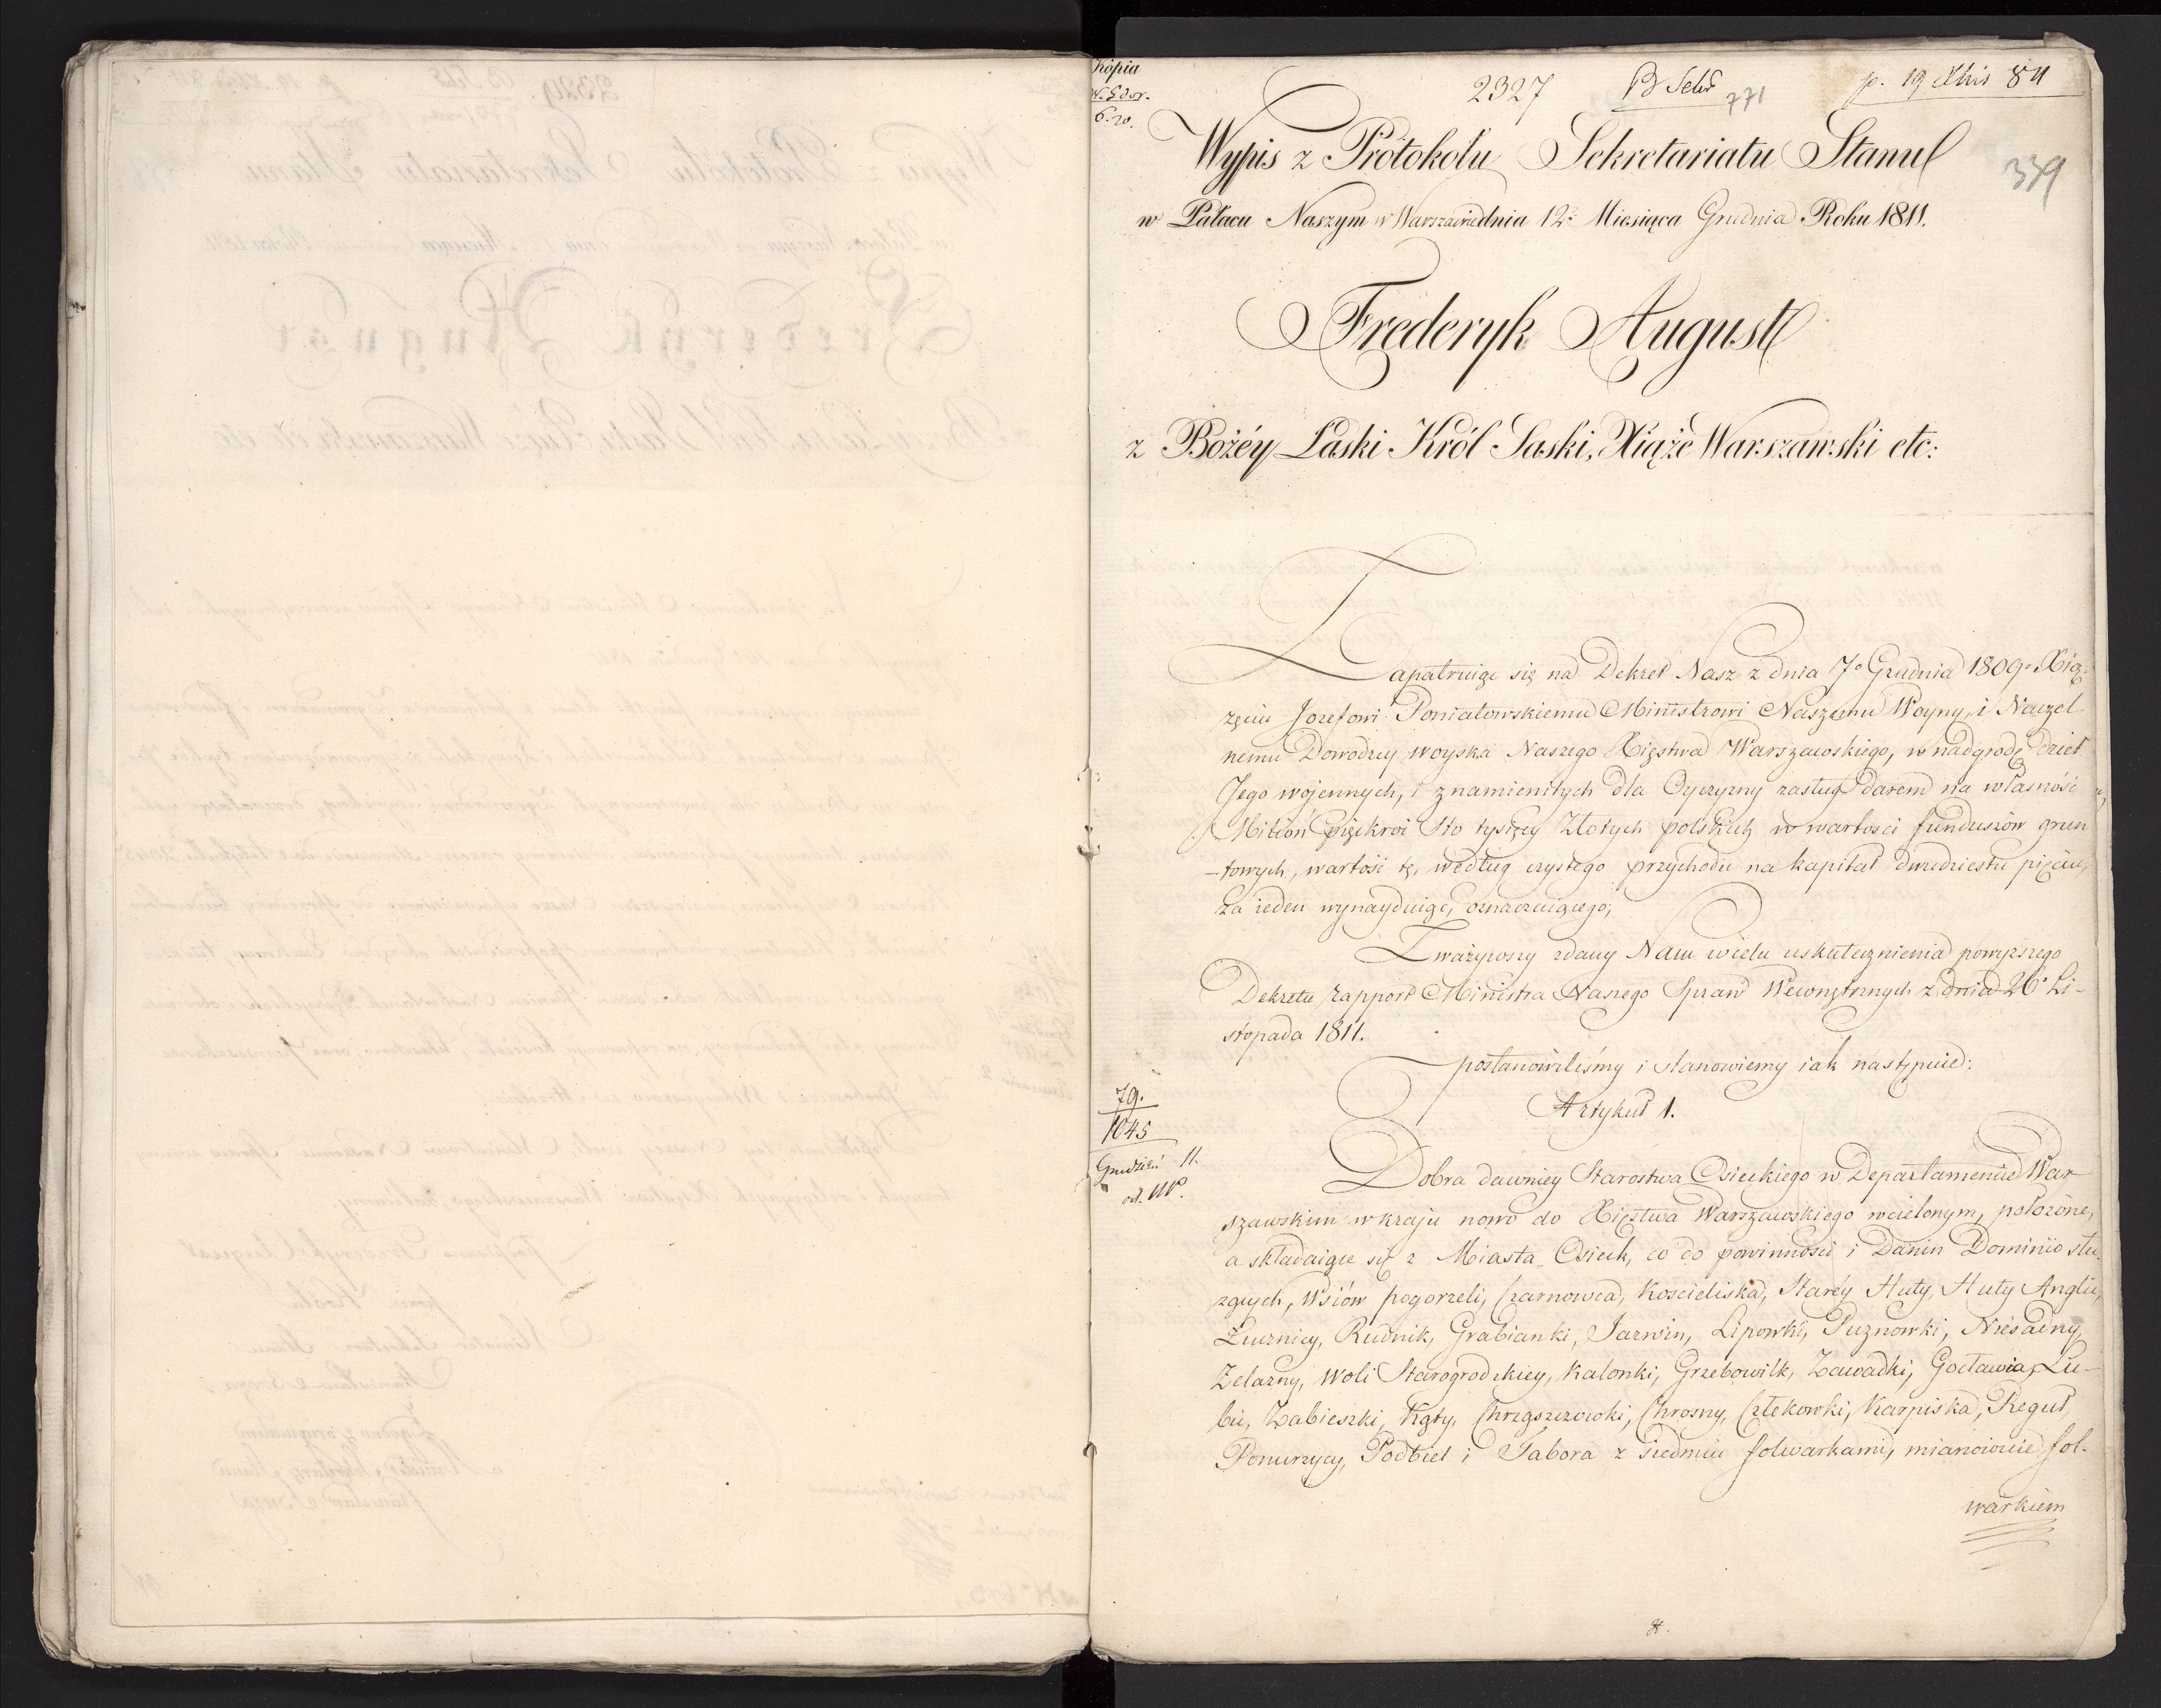 Kopia
2327
B Sekr
771
p. 19 Xbris 811
6.
Wypis z Protokołu Sekretariatu Stanu
339
w Pałacu Naszym w Warszawie dnia 12. Miesiąca Grudnia Roku 1811.
Frederyk August
z Bożéy Łaski Król Saski, Xiąże Warszawski etc:
Zapatruiąc się na Dekret Nasz z dnia 7o Grudnia 1809o Xią-
żęciu Jozefowi Poniatowskiemu Ministrowi Naszemu Woyny, i Naczel
nemu Dowodzcy woyska Naszego Xięstwa Warszawskiego, w nadgrodę dzieł
Jego wojennych, i znamienitych dla Oyczyzny zasług darem na własność
Milion pięćkroć Sto tysięcy Złotych polskich w wartości funduszów grun
-towych, wartość tę, według czystego przychodu na kapitał dwudziestu pięciu,
za ieden wynayduiąc, oznaczaiącego;
Zważywszy zdany Nam wielu uskutecznienia powyższego
Dekretu rapport Ministra Naszego Spraw Wewnętrznych z dnia 26o Li-
stopada 1811.
postanowiliśmy i stanowiemy iak następuie:
79.
1045
Grudzień 11.
Artykuł 1.
Dobra dawniey Starostwa Osieckiego w Departamencie War
szawskim w kraju nowo do Xięstwa Warszawskiego wcielonym, położone,
a składaiące się z Miasta Osieck, co do powinności i Danin Dominio słu-
żących, Wsiów pogorzeli, Czarnowca, Kościeliska, Staréy Huty, Huty Anglii,
Łucznicy, Rudnik, Grabianki, Jaźwin, Lipowki, Puznowki, Niesadny
Żelazny, Woli Starogrodzkiey, Kalonki, Grzebowilk, Zawadki, Gocławia, Lu-
bic, Żabieszki, Kąty, Chrząszczowki, Chrosny, Człekowki, Karpiska, Reguł,
Ponurzycy, Podbiel i Tabora z siedmiu folwarkami, mianowicie fol-
warkiem